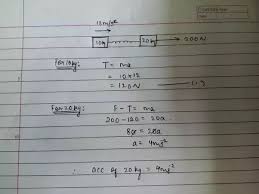 12m/s²
10kg 20kg → 200N
For 10kg:
T = ma
= 10×12
= 120N (1)
For 20kg:
F - T = ma
200 - 120 = 20a
80 = 20a
a = 4m/s²
∴ acc of 20kg = 4ms⁻²